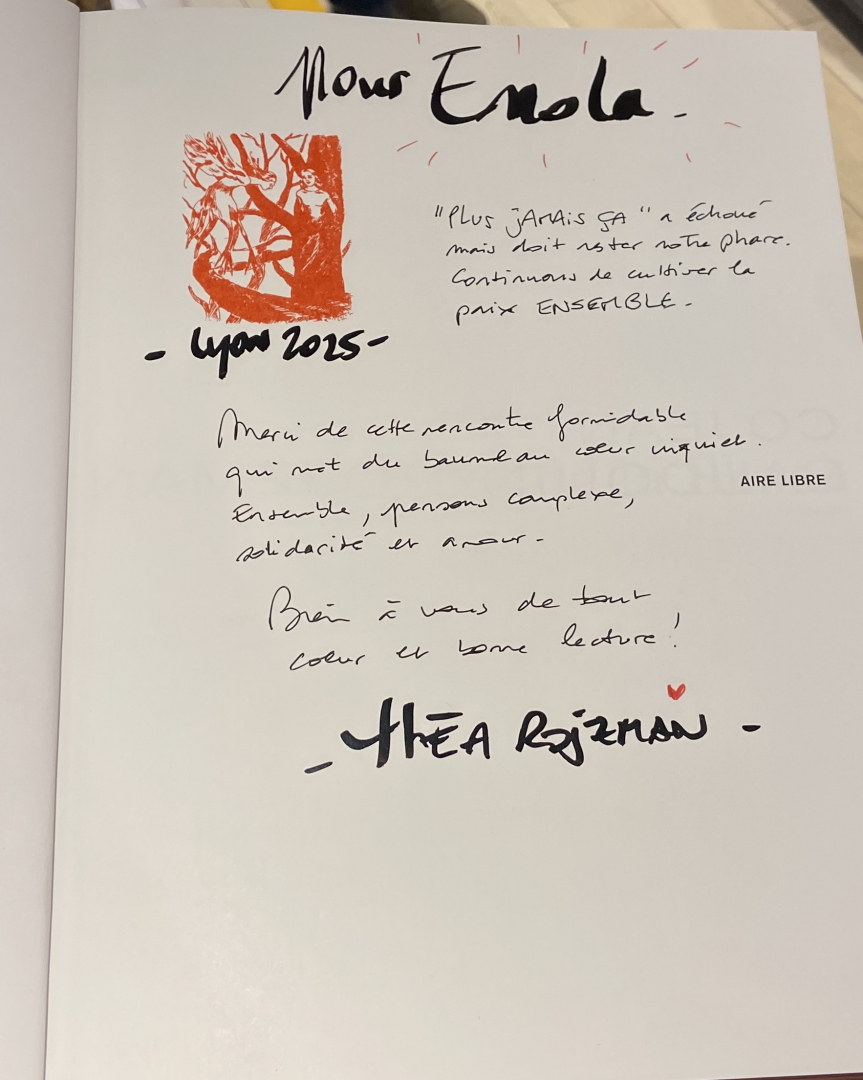 Pour Enola.
"PLUS jAMAIS ÇA" a échoué
mais doit rester notre phare.
Continuons de cultiver la
paix ENSEMBLE.
- Lyon 2025 -
Merci de cette rencontre formidable
qui met du baume au cœur inquiet.
AIRE LIBRE
Ensemble, pensons complexe,
solidarité et amour.
Bien à vous de tout
cœur et bonne lecture!
- THÉA ROJZMAN -